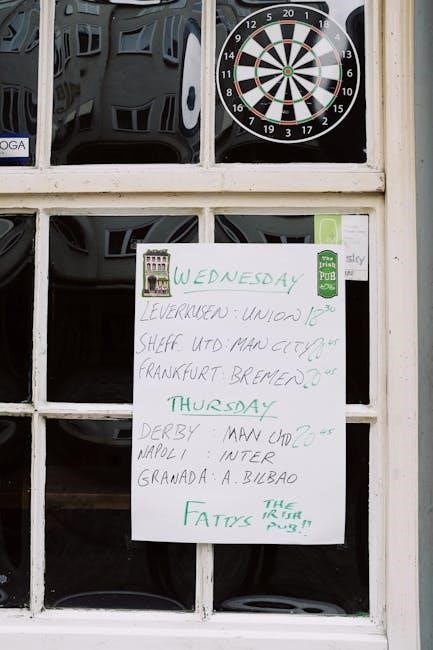 20 1 18 4 13 6 10 15 2 17 3 19 7 16 8 11 14 9 12 5
OGA
sky
The
Irish
PUB
WEDNESDAY
LEVERKUSEN : UNION 18 30
SHEFF. UTD : MAN CITY 20 45
FRANKFURT : BREMEN 20 45
THURSDAY
DERBY : MAN UTD 20 45
NAPOLI : INTER
GRANADA : A. BILBAO
FATTYS THE
IRISH
PUB!!